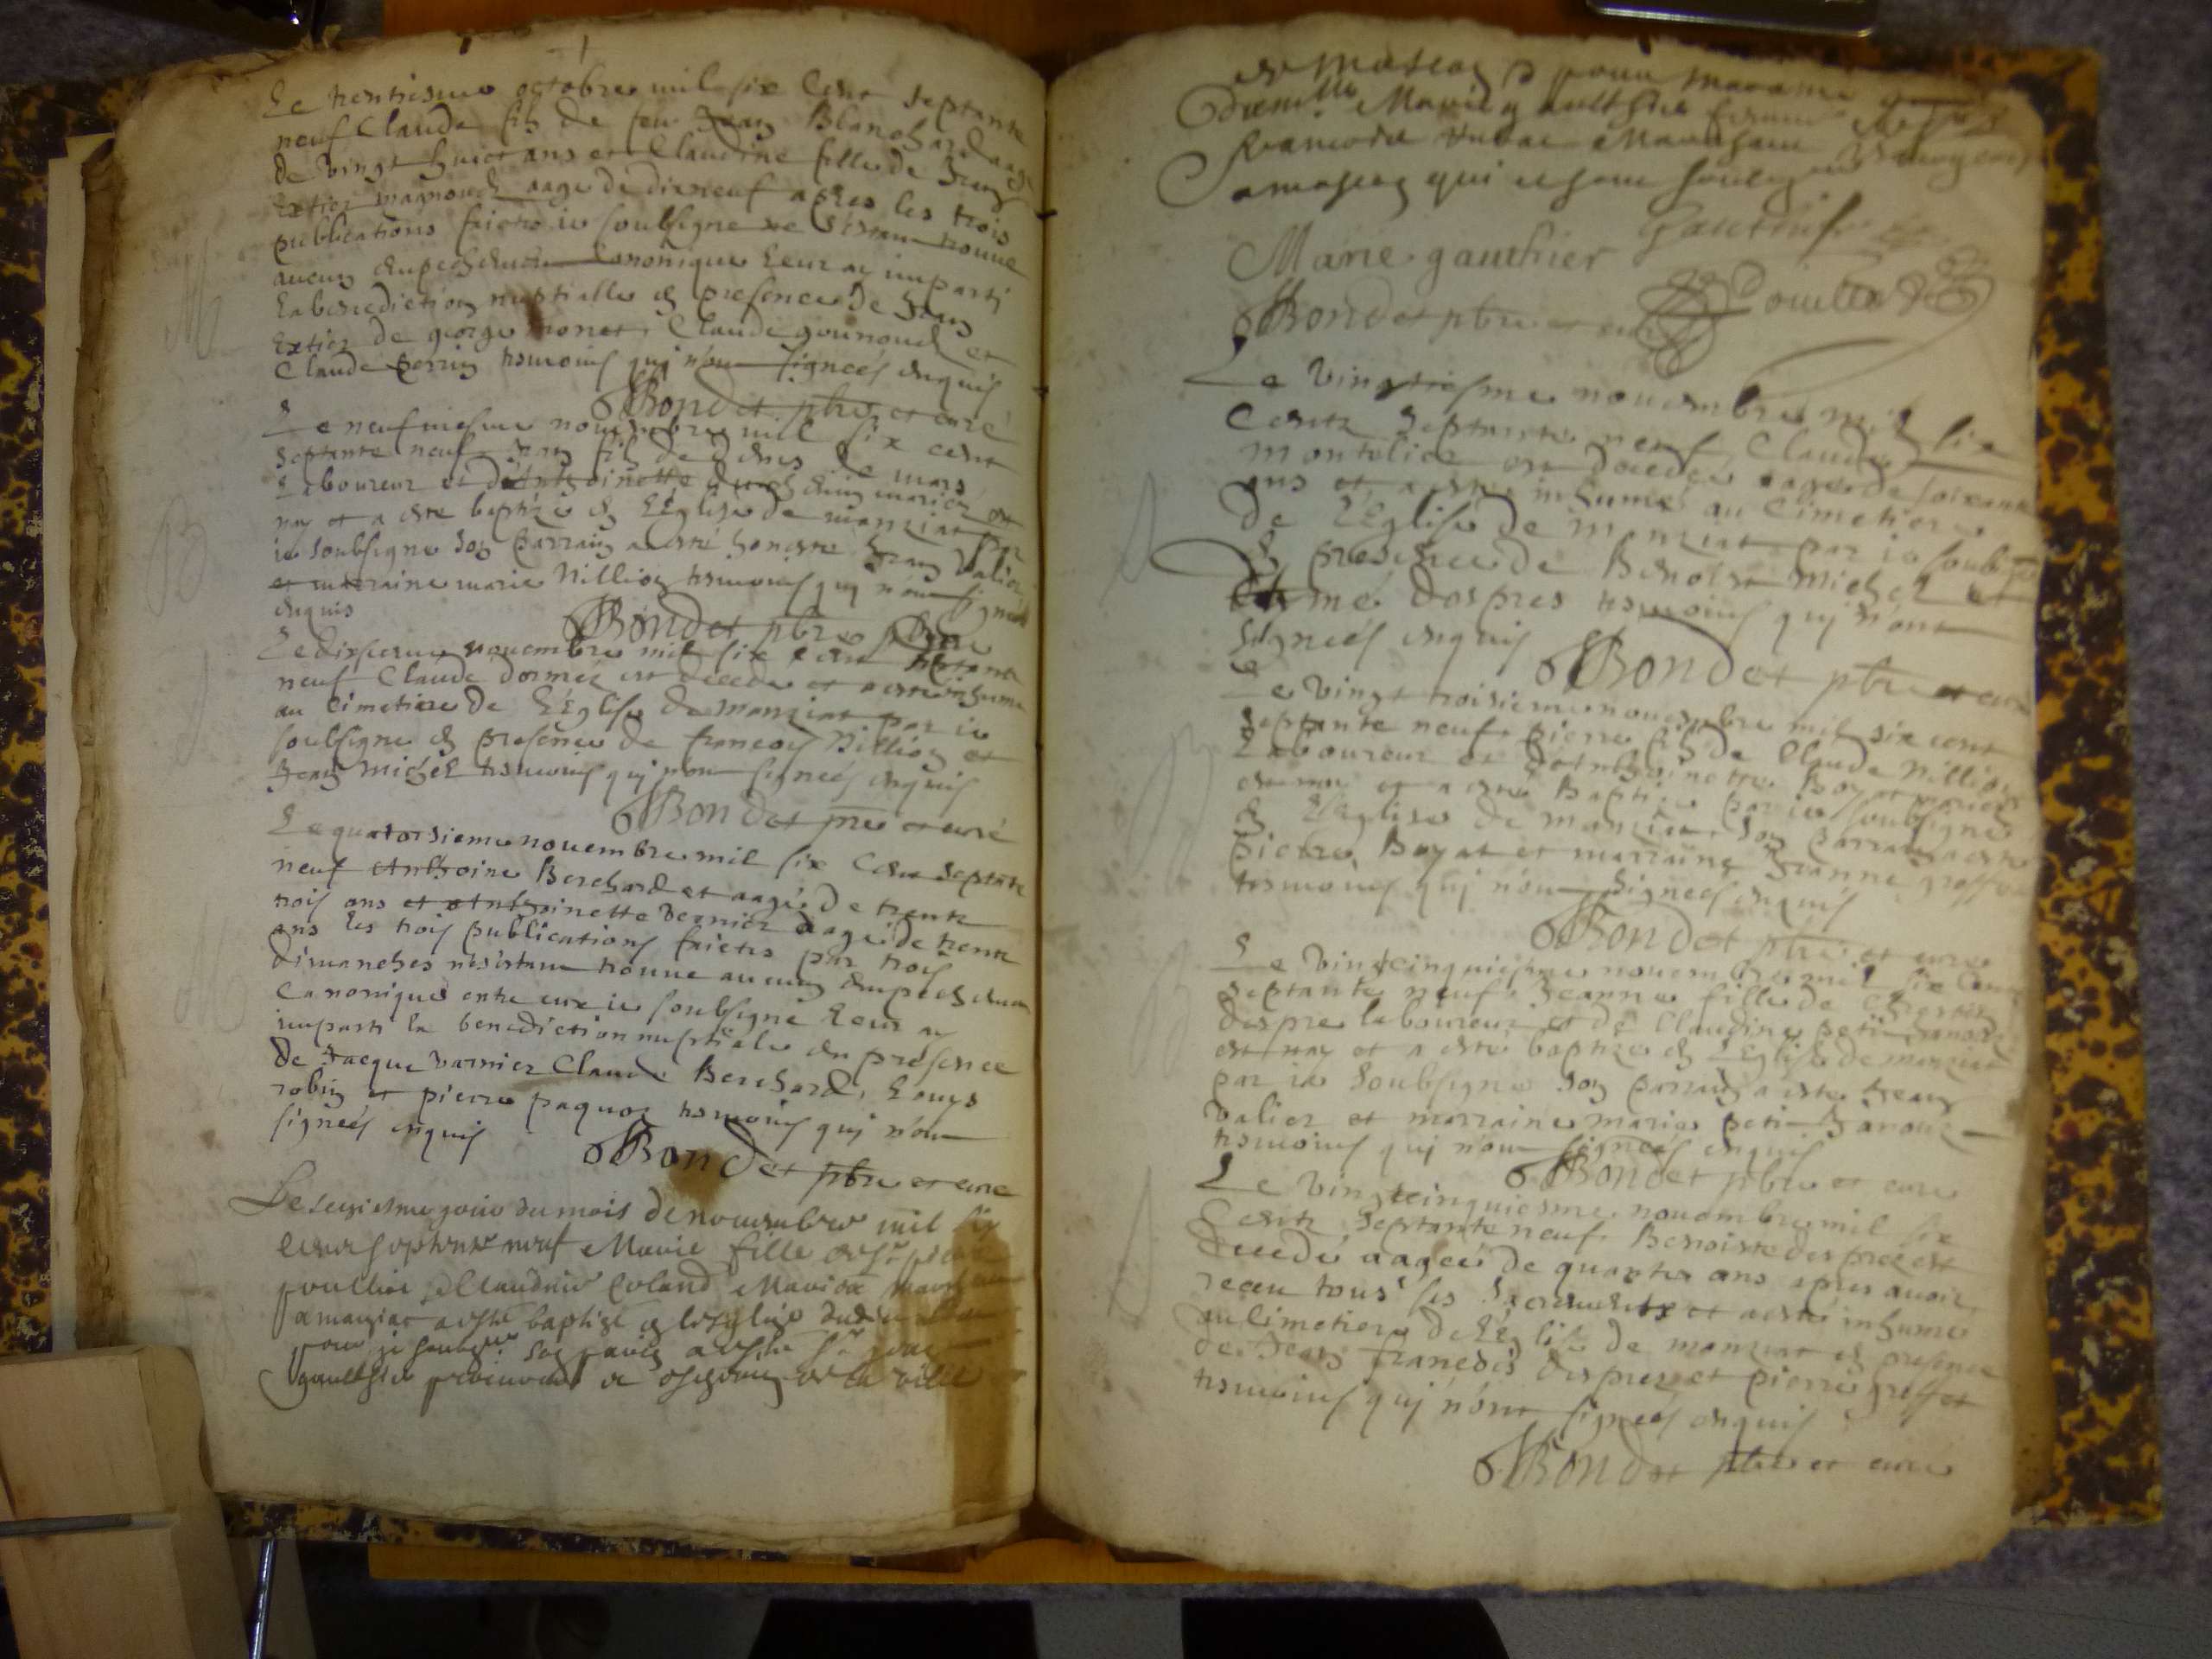 Le trentiesme octobre mil six Cent septante
neuf Claude fils de feu Jean Blanchard aagé
de vingt huict ans et Claudine fille de Jean
Extier magnoud aage de dixneuf apres les trois
publications faictes ie soubsigne ne sestant trouue
aucun empechement Canonique leur ay imparti
la benediction nuptialle en presence de Jean
Extier de george monet, Claude gounoud et
Claude perrin tesmoins qui n'ont signeés enquis
Bondet pbre et curé
Le neufuiesme nouembre mil six cent
septante neuf Jean fils de denis de mars
Laboureur et d'Anthoinette mariez est
nay et a esté baptize en l'Eglise de manziat par
ie soubsigne son parrain a esté honeste Jean valier
et marraine marie Nillion tesmoins qui n'ont signeés
enquis
Bondet pbre
Le dixiesme nouembre mil six cent septante
neuf Claude dormez est decede et a esté inhume
au Cimetiere de L'Eglise de manziat par ie
soubsigne en presence de francois Nillion et
Jean michel tesmoins qui n'ont signeés enquis
Bondet pbre et curé
Le quatorsieme nouembre mil six Cent septante
neuf Anthoine Berchard et aagé de trente
trois ans et Anthoinette vernier aagé de trente
ans les trois publications faictes par trois
dimanches n'estant trouue aucun empechement
Canonique entre eux ie soubsigne leur ay
imparti la benediction nuptiale en presence
de Jacque varnier Claude Berchard, Louys
robin et pierre paquoz tesmoins qui n'ont
signeés enquis
Bondet pbre et curé
Le seiziesme jour du mois de nouembre mil six
cent septante neuf Marie fille de sr pierre
poullier Claudine Coland Mariez
a manziat a esté baptizé en lesglise dudit
par je soubsigne son parrin a esté sr
gaulthier procureur de la ville
de mascon pour marame
damlle Marie gaulthier femme
francois
a mascon qui
Marie gauthier
Gauthier
Bondet pbre et curé
Le vingtiesme nouembre mil six
Cents septante neuf Claude
montelier est decedee aagé de soixante
ans et a esté inhumé au Cimetiere
de L'Eglise de manziat par ie soubsigne
En presence de Benoist Michel et
Esmé despres tesmoins qui n'ont
signeés enquis
Bondet pbre et curé
Le vingt troisieme nouembre mil six cent
septante neuf pierre fils de Claude Nillion
Laboureur et d'Anthoinette Boyat mariez
est nay et a esté Baptize par ie soubsigne
en l'Eglise de manziat son parrain a esté
pierre Boyat et marraine Jeanne
tesmoins qui n'ont signeés enquis
Bondet pbre et curé
Le vintcinquiesme nouembre mil six Cent
septante neuf Jeanne fille de
despre laboureur et de Claudine petit
est nay et a esté baptize en l'Eglise de manziat
par ie soubsigne son parrain a esté Jean
valier et marraine marie petit
tesmoins qui n'ont signeés enquis
Bondet pbre et curé
Le vingtcinquiesme nouembre mil six
Cents septante neuf Benoiste desprez est
decedé aageé de quarte ans apres auoir
receu tous les Sacrements et a esté inhumé
au Cimetiere de L'Eglise de manziat en presence
de Jean francois desprez et pierre greffet
tesmoins qui n'ont signeés enquis
Bondet pbre et curé